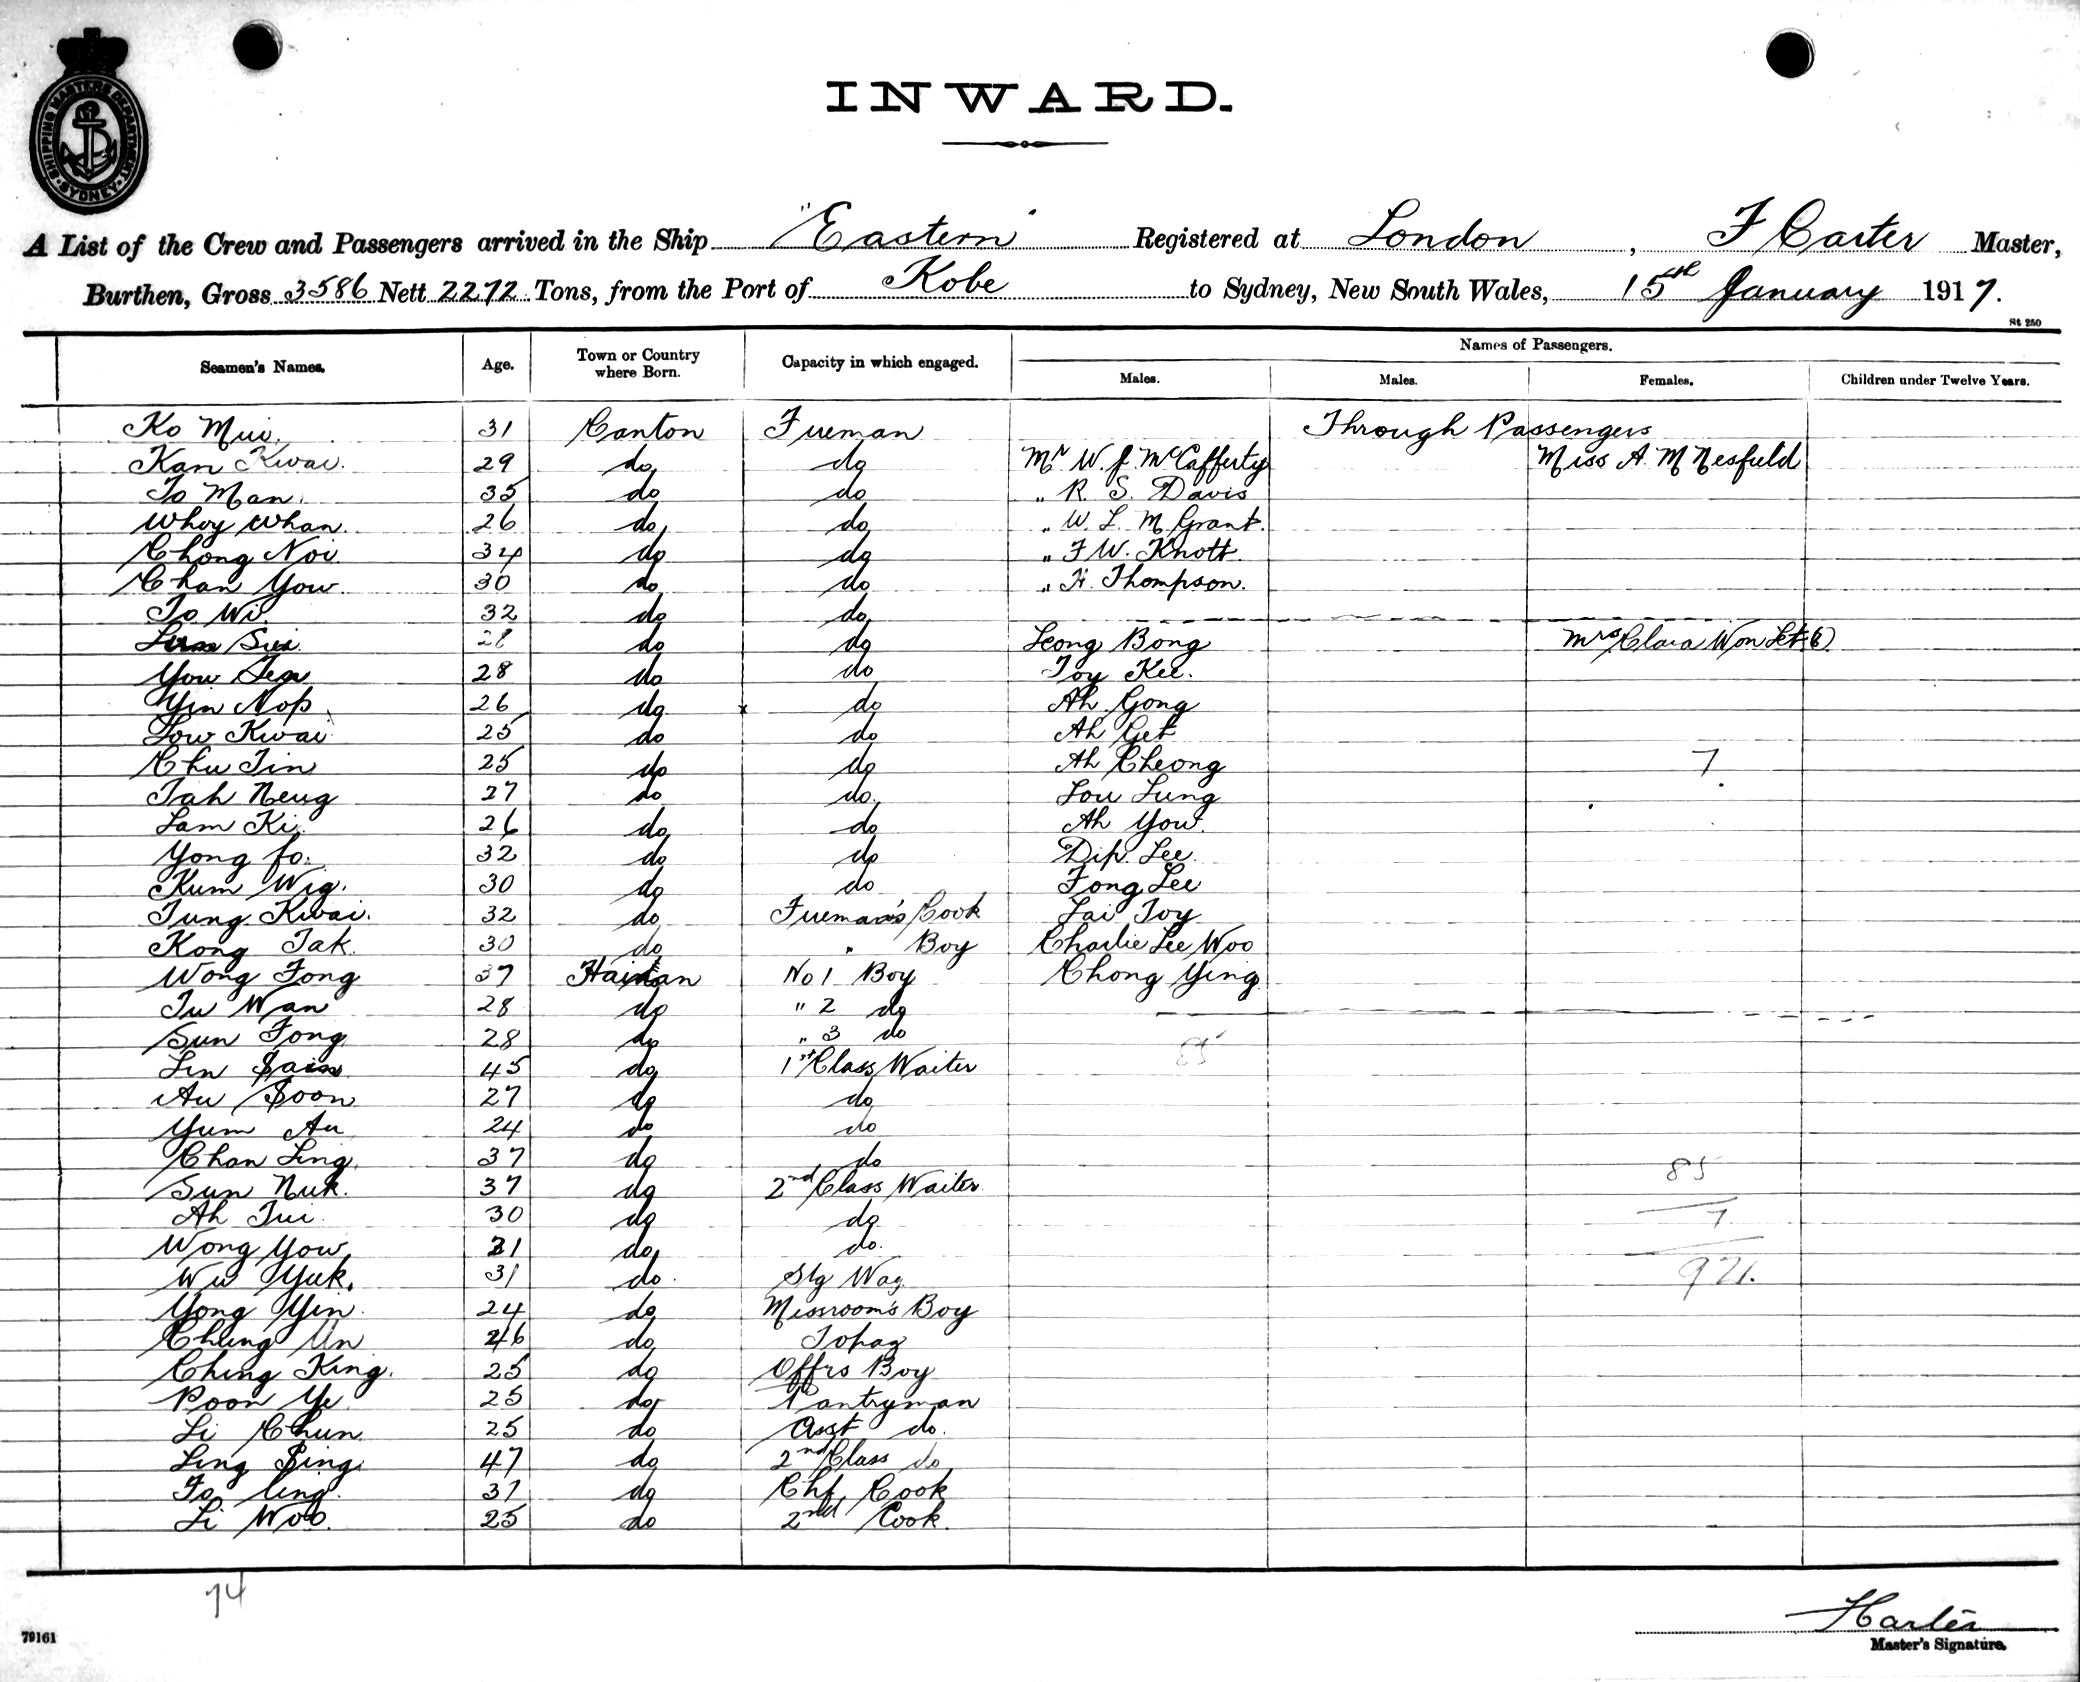 SHIPPING MASTERS DEPARTMENT
SYDNEY
INWARD.
A List of the Crew and Passengers arrived in the Ship "Eastern" Registered at London, F Carter Master,
Burthen, Gross 3586 Nett 2272 Tons, from the Port of Kobe to Sydney, New South Wales, 15th January 1917.
St 250
Seamen's Names. Age. Town or Country where Born. Capacity in which engaged. Names of Passengers.
Males. Males. Females. Children under Twelve Years.
Ko Mui. 31 Canton Fireman Through Passengers
Kan Kwai. 29 do do Mr W. J. McCafferty Miss A. M Nesfield
To Man. 35 do do " R. S. Davis
Whoy Whan. 26 do do " W. L. M Grant.
Chong Noi. 34 do do " F W. Knott
Chan You. 30 do do " H. Thompson.
To Wi. 32 do do
Sui. 28 do do Leong Bong Mrs Clara Won Let (6)
You 28 do do Toy Kee.
Yin Nop. 26 do x do Ah Gong
Low Kwai 25 do do Ah Get
Chu Tin 25 do do Ah Cheong 7.
Tah Neug 27 do do. Lou Lung
Lam Ki. 26 do do Ah You.
Yong fo. 32 do do Dip. Lee.
Kum Wig. 30 do do Fong Lee
Tung Kwai. 32 do Fireman's Cook Lai Toy
Kong Tak. 30 do " Boy Charlie Lee Woo
Wong Fong 37 Hainan No 1 Boy Chong Ying
Tu Wan 28 do " 2 do
Sun Fong 28 do " 3 do 85
Lin 45 do 1st Class Waiter
Au Soon 27 do do
Yum Au 24 do do
Chan Ling. 37 do do 85
Sun Nuk. 37 do 2nd Class Waiter.
Ah Tui. 30 do do 7
Wong You, 31 do do.
Wu Yuk. 31 do. Slg Wag. 92
Yong Yin. 24 do Messroom's Boy
Chung Un 46 do Topaz
Ching King. 25 do Offrs Boy
Poon Ye 25 do Pantryman
Li Chun 25 do Asst do.
Ling Sing 47 do 2nd Class do
Fo ling. 37 do Chf Cook
Li Woo. 25 do 2nd Cook.
74
79161
F Carter
Master's Signature.